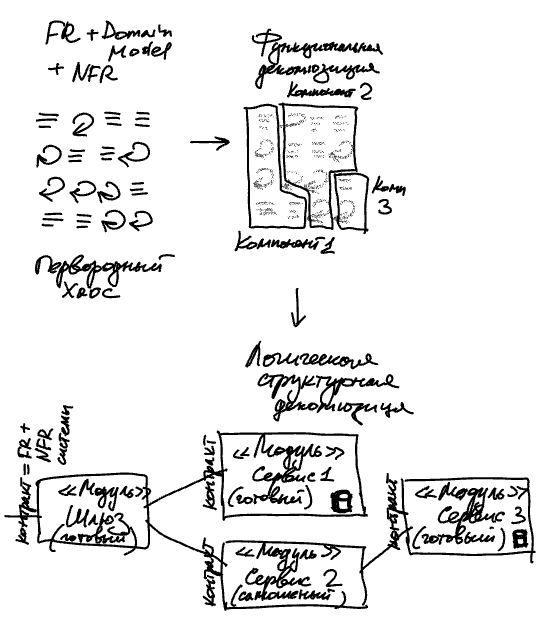 FR + Domain
Model
+ NFR
Первородный
Хаос
Функциональная
декомпозиция
Компонент 2
Комп
3
Компонент 1
Логическая
структурная
декомпозиция
контракт = FR +
NFR
системы
<<Модуль>>
Шлюз
(готовый)
контракт
<<Модуль>>
Сервис 1
(готовый)
контракт
<<Модуль>>
Сервис 2
(самописный)
контракт
<<Модуль>>
Сервис 3
(готовый)